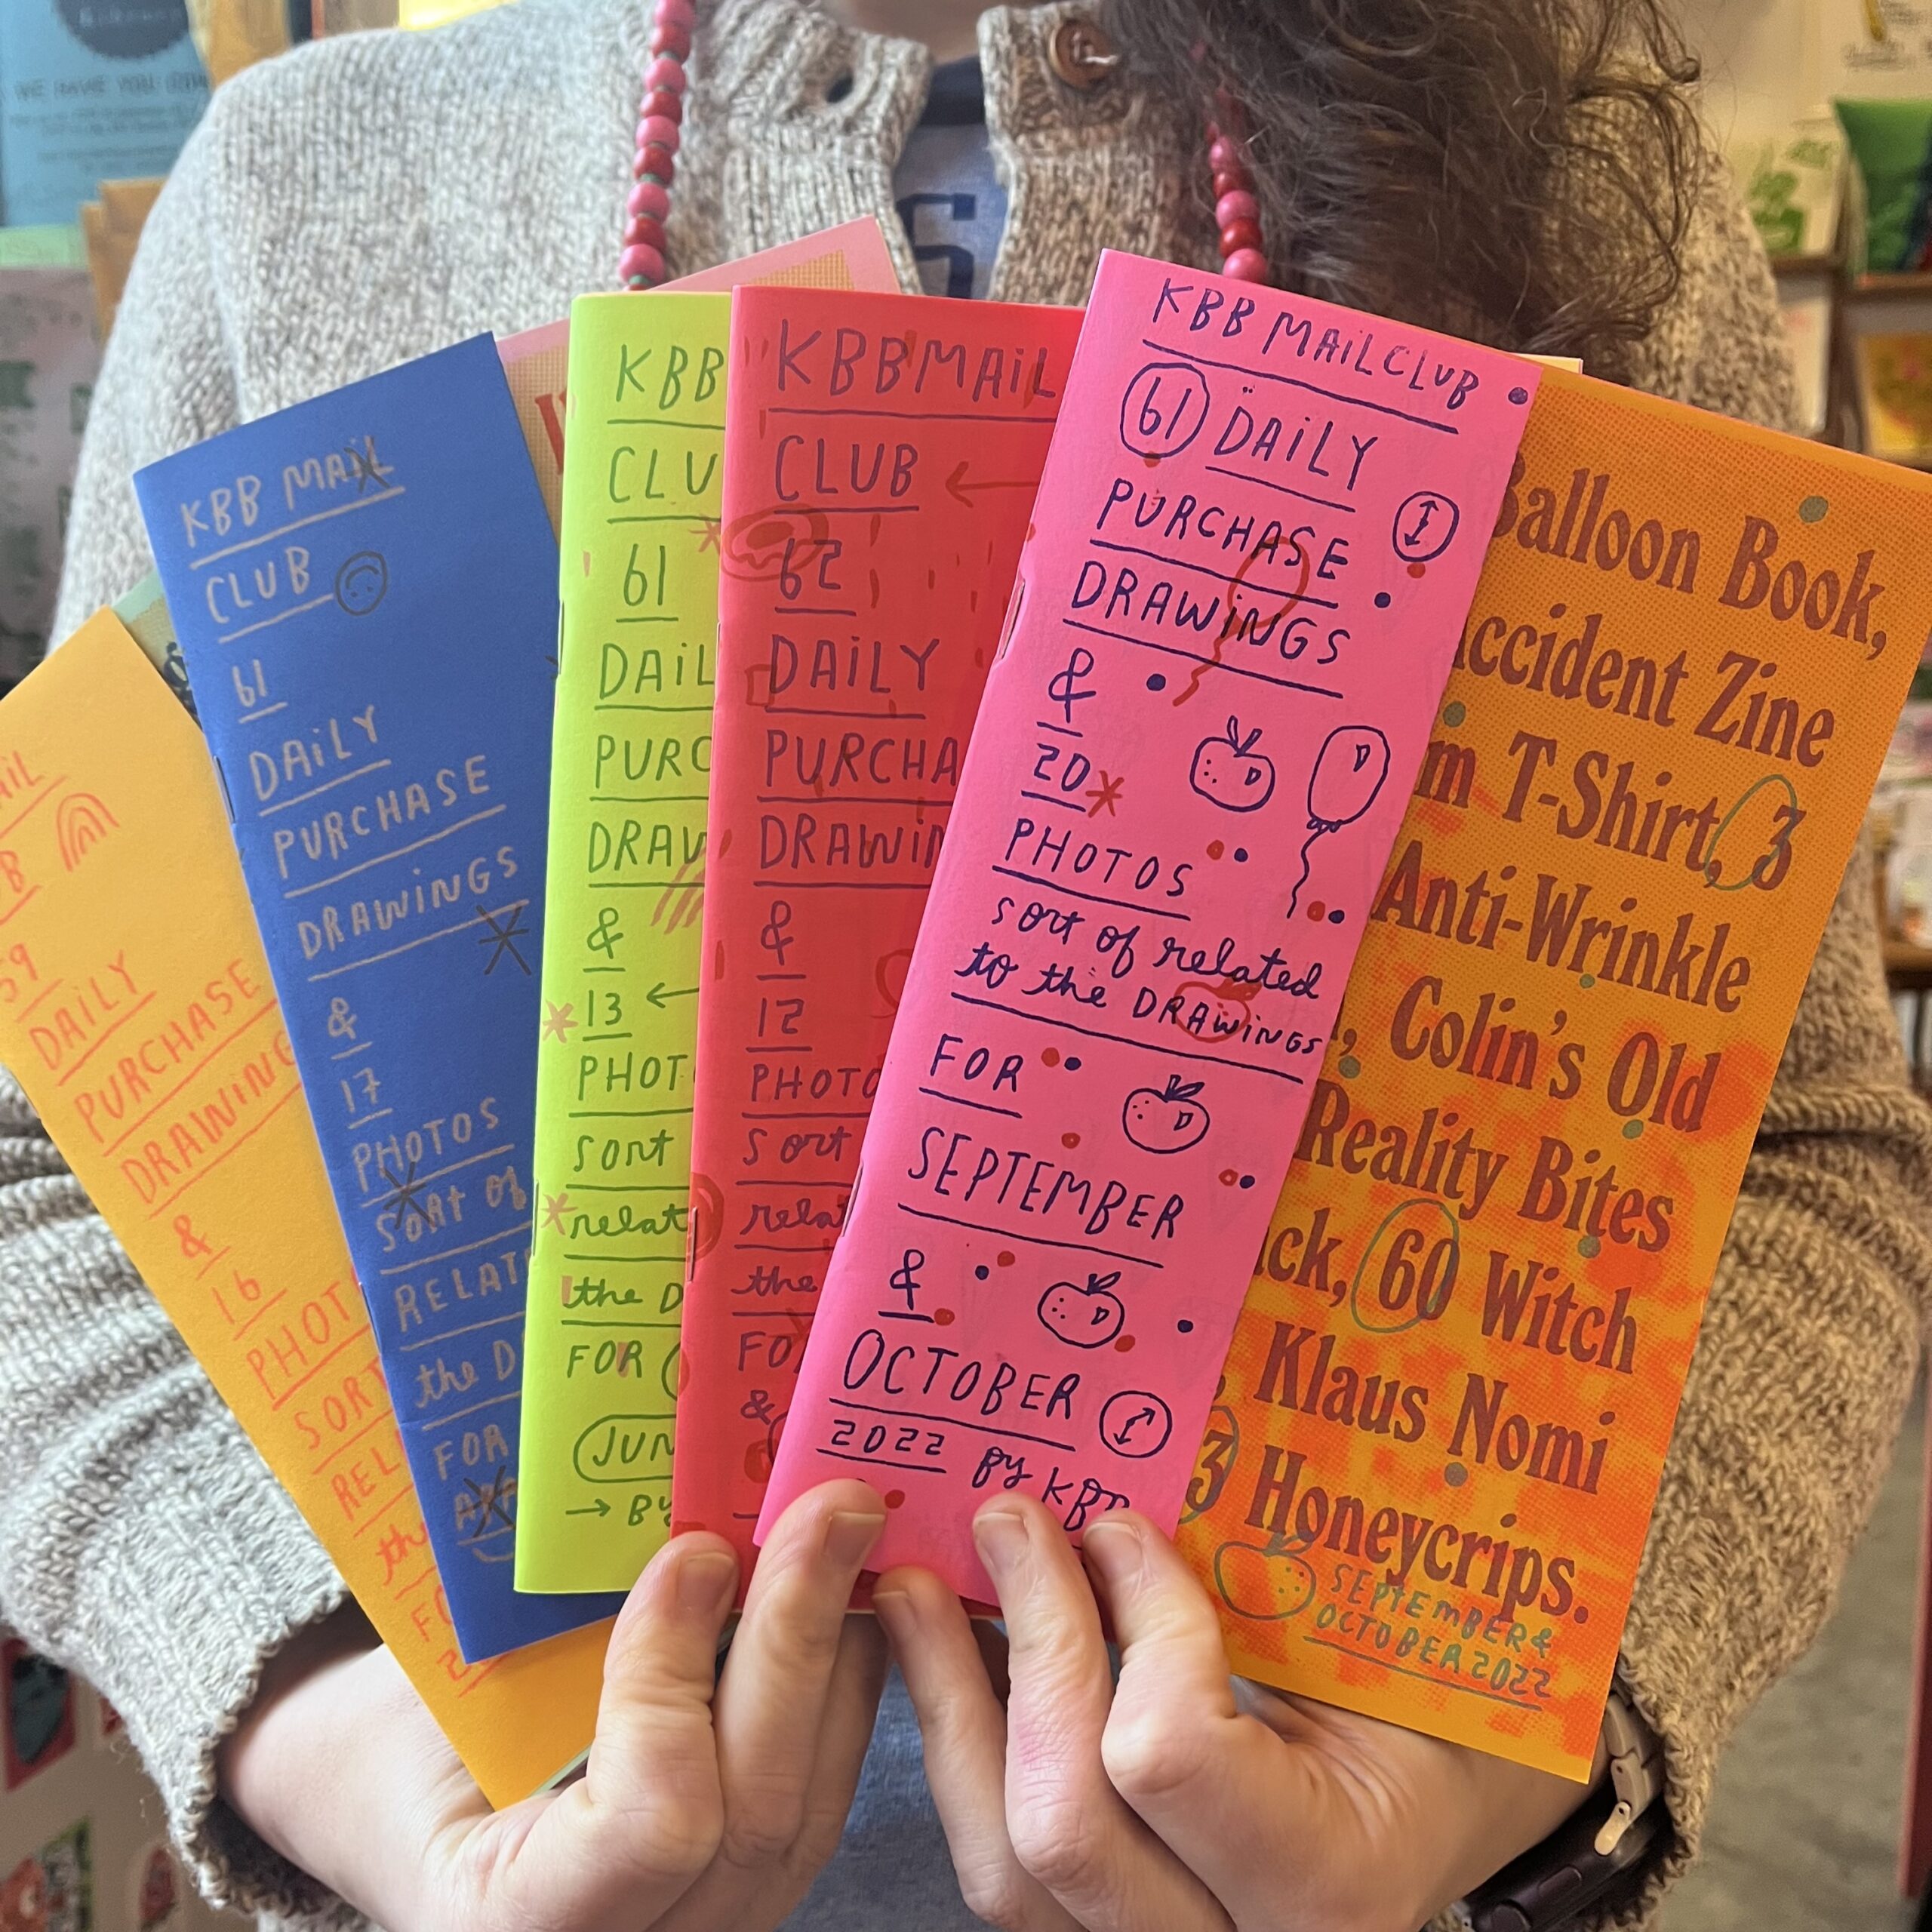 WE HAVE YOU
S
AIL
B
59
DAILY
PURCHASE
DRAWING
&
16
PHOT
SORT
REL
the
FO
2
KBB MAIL
CLUB
61
DAILY
PURCHASE
DRAWINGS
&
17
PHOTOS
SORT OF
RELAT
the D
FOR
KBB
CLU
61
DAIL
PURC
DRAW
&
13
PHOT
sort
relat
the D
FOR
JUN
BY
KBB MAIL
CLUB
62
DAILY
PURCHA
DRAWIN
&
12
PHOTO
sort
rela
the
FO
&
KBB MAILCLUB
61 DAILY
PURCHASE
DRAWINGS
&
20
PHOTOS
sort of related
to the DRAWINGS
FOR
SEPTEMBER
&
OCTOBER
2022 by KBB
Balloon Book,
ccident Zine
m T-Shirt, 3
Anti-Wrinkle
, Colin's Old
Reality Bites
ck, 60 Witch
, Klaus Nomi
3 Honeycrips.
SEPTEMBER &
OCTOBER 2022